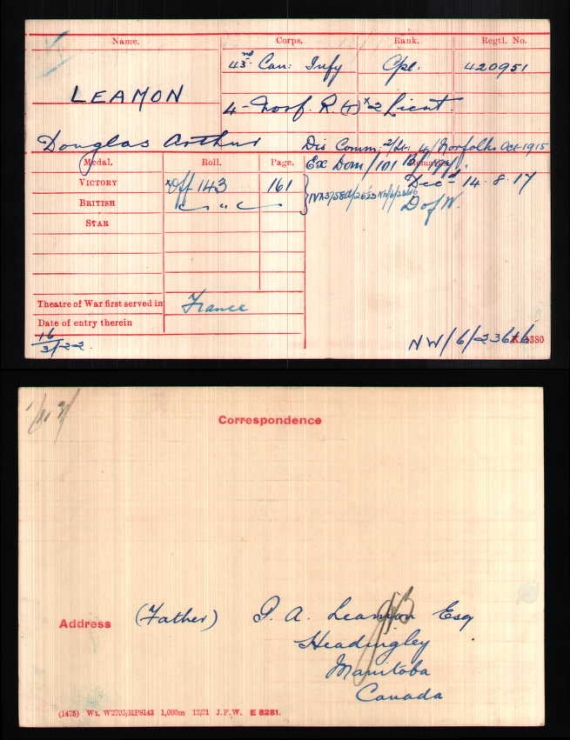 Name. Corps. Rank. Regtl. No.
43rd Can: Infy Cpl. 420951
LEAMON
4-Norf. R (T) x2 Lieut
Douglas Arthur
Dis Comm. 2/Lt. 4/Norfolks Oct-1915
Medal. Roll. Page. Ex Dom/101 B/
VICTORY Off 143 161 Decd 14.8.17
BRITISH D of W.
STAR
Theatre of War first served in France
Date of entry therein
16/3/22. NW/6/23646 K 1380
Correspondence
Address (Father) P. A. Leamon Esq
Headingley
Manitoba
Canada
(1475) Wt. W2702/RP8142 1,000m 12/21 J.F.W. E 8281.